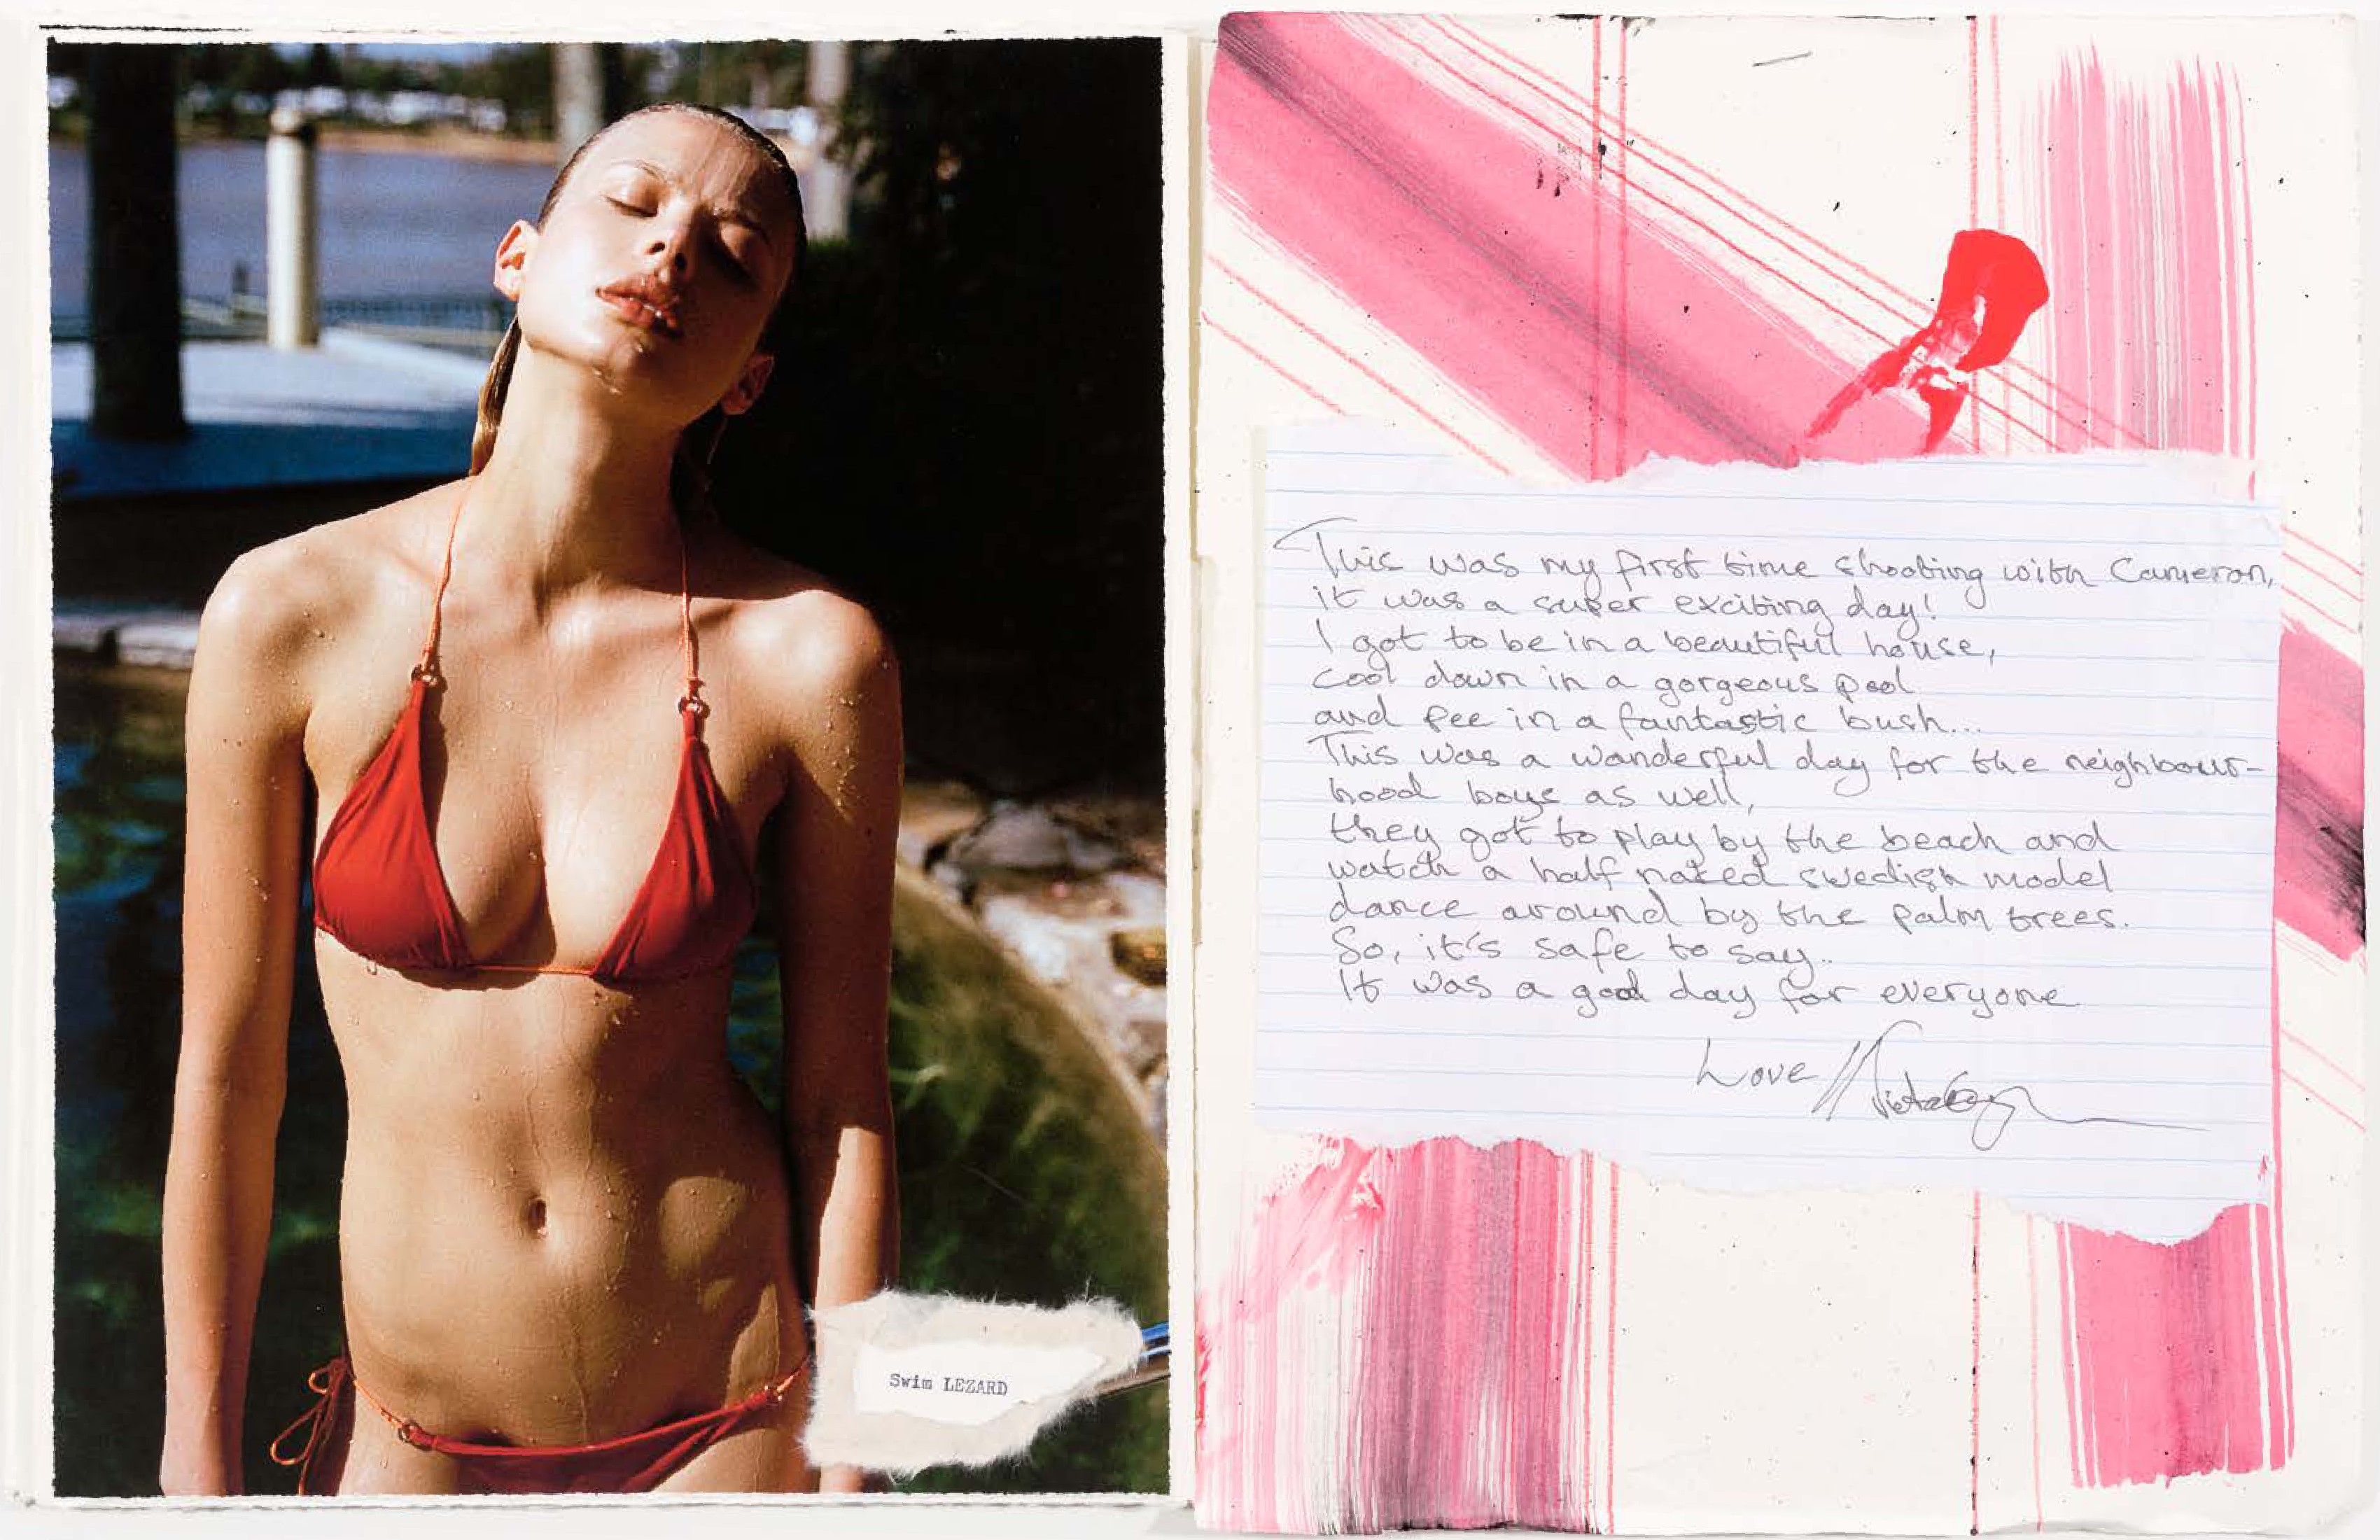 Swim LEZARD
This was my first time shooting with Cameron,
it was a super exciting day!
I got to be in a beautiful house,
cool down in a gorgeous pool
and pee in a fantastic bush...
This was a wonderful day for the neighbour-
hood boys as well,
they got to play by the beach and
watch a half naked swedish model
dance around by the palm trees.
So, it's safe to say..
It was a good day for everyone
Love